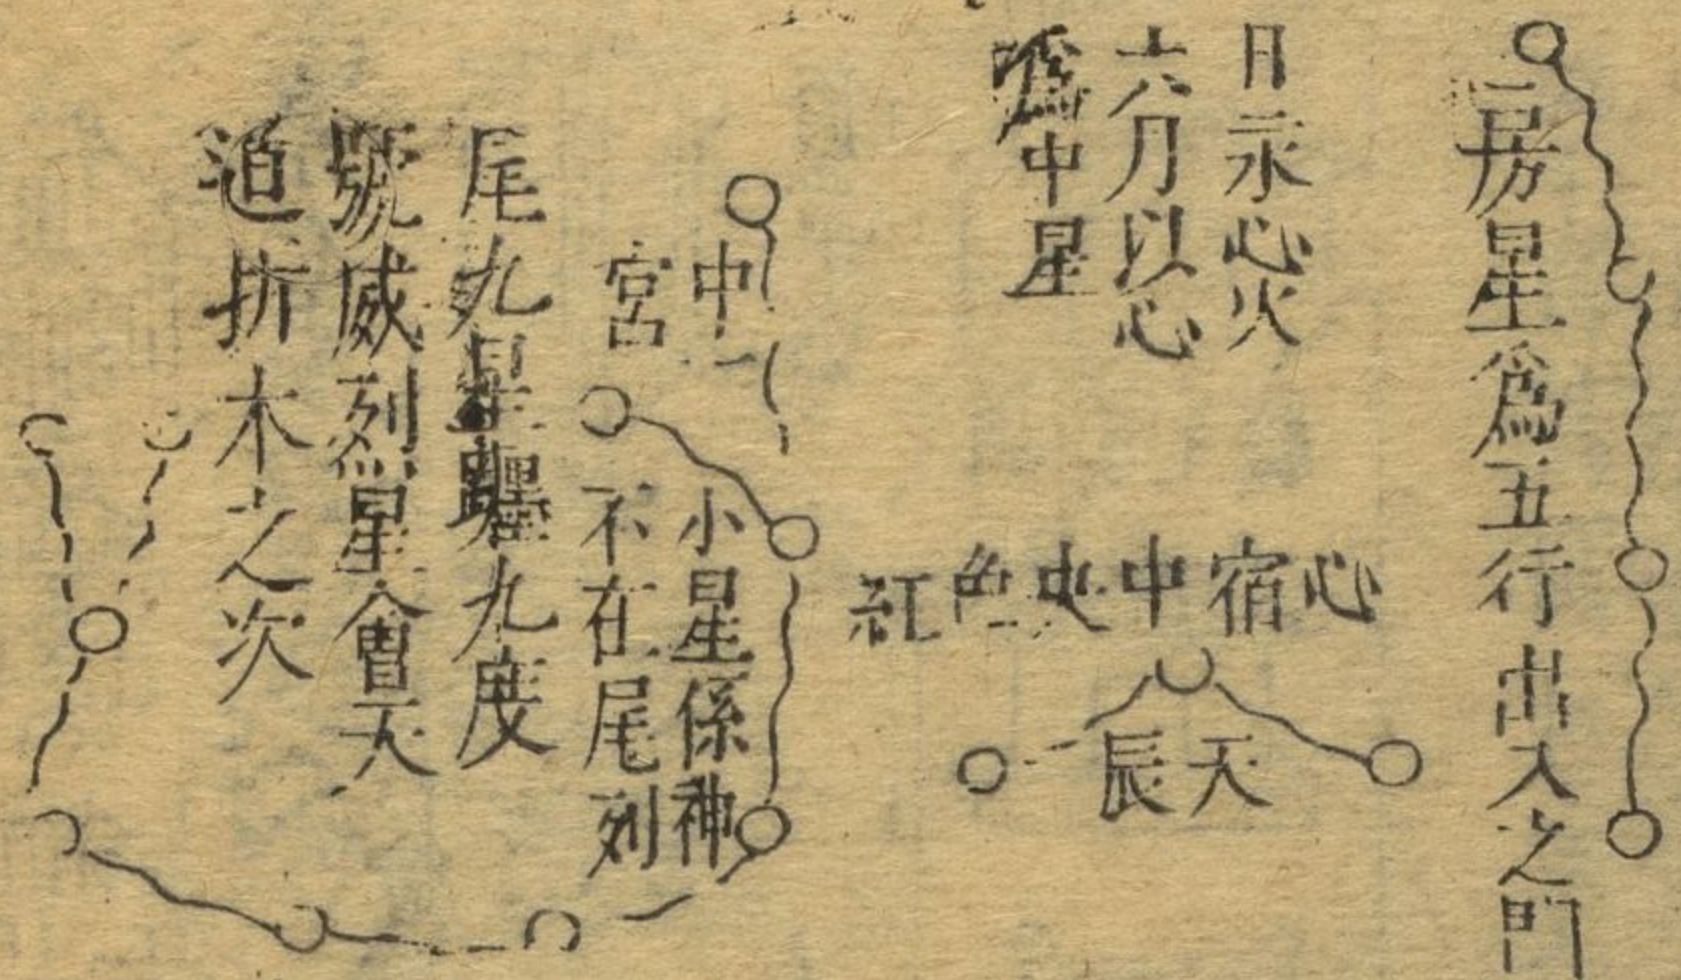 房星爲五行出入之門
日永心火
六月以心
爲中星
心宿中央色紅
天辰
中
宮
小星係神
不在尾列
尾九星躔九度
號威烈星會天
追折木之次